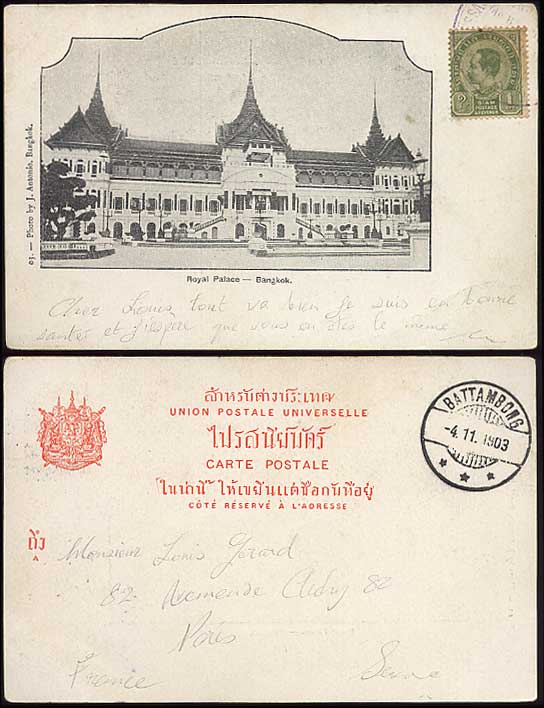 SIAM
POSTAGE
& REVENUE
๑
1
03. — Photo by J. Antonio, Bangkok.
Royal Palace — Bangkok.
Cher Louis, tout va bien je suis en bonne
santé et j'espère que vous en êtes le même
สำหรับต่างประเทศ
UNION POSTALE UNIVERSELLE
ไปรสนียบัตร์
CARTE POSTALE
ในด้านนี้ ให้เขียนแต่ชื่อกับที่อยู่
CÔTÉ RÉSERVÉ À L'ADRESSE
BATTAMBONG
-4.11.1903
ถึง
A
Monsieur Louis Gerard
82 Clichy 82
Paris
France Seine